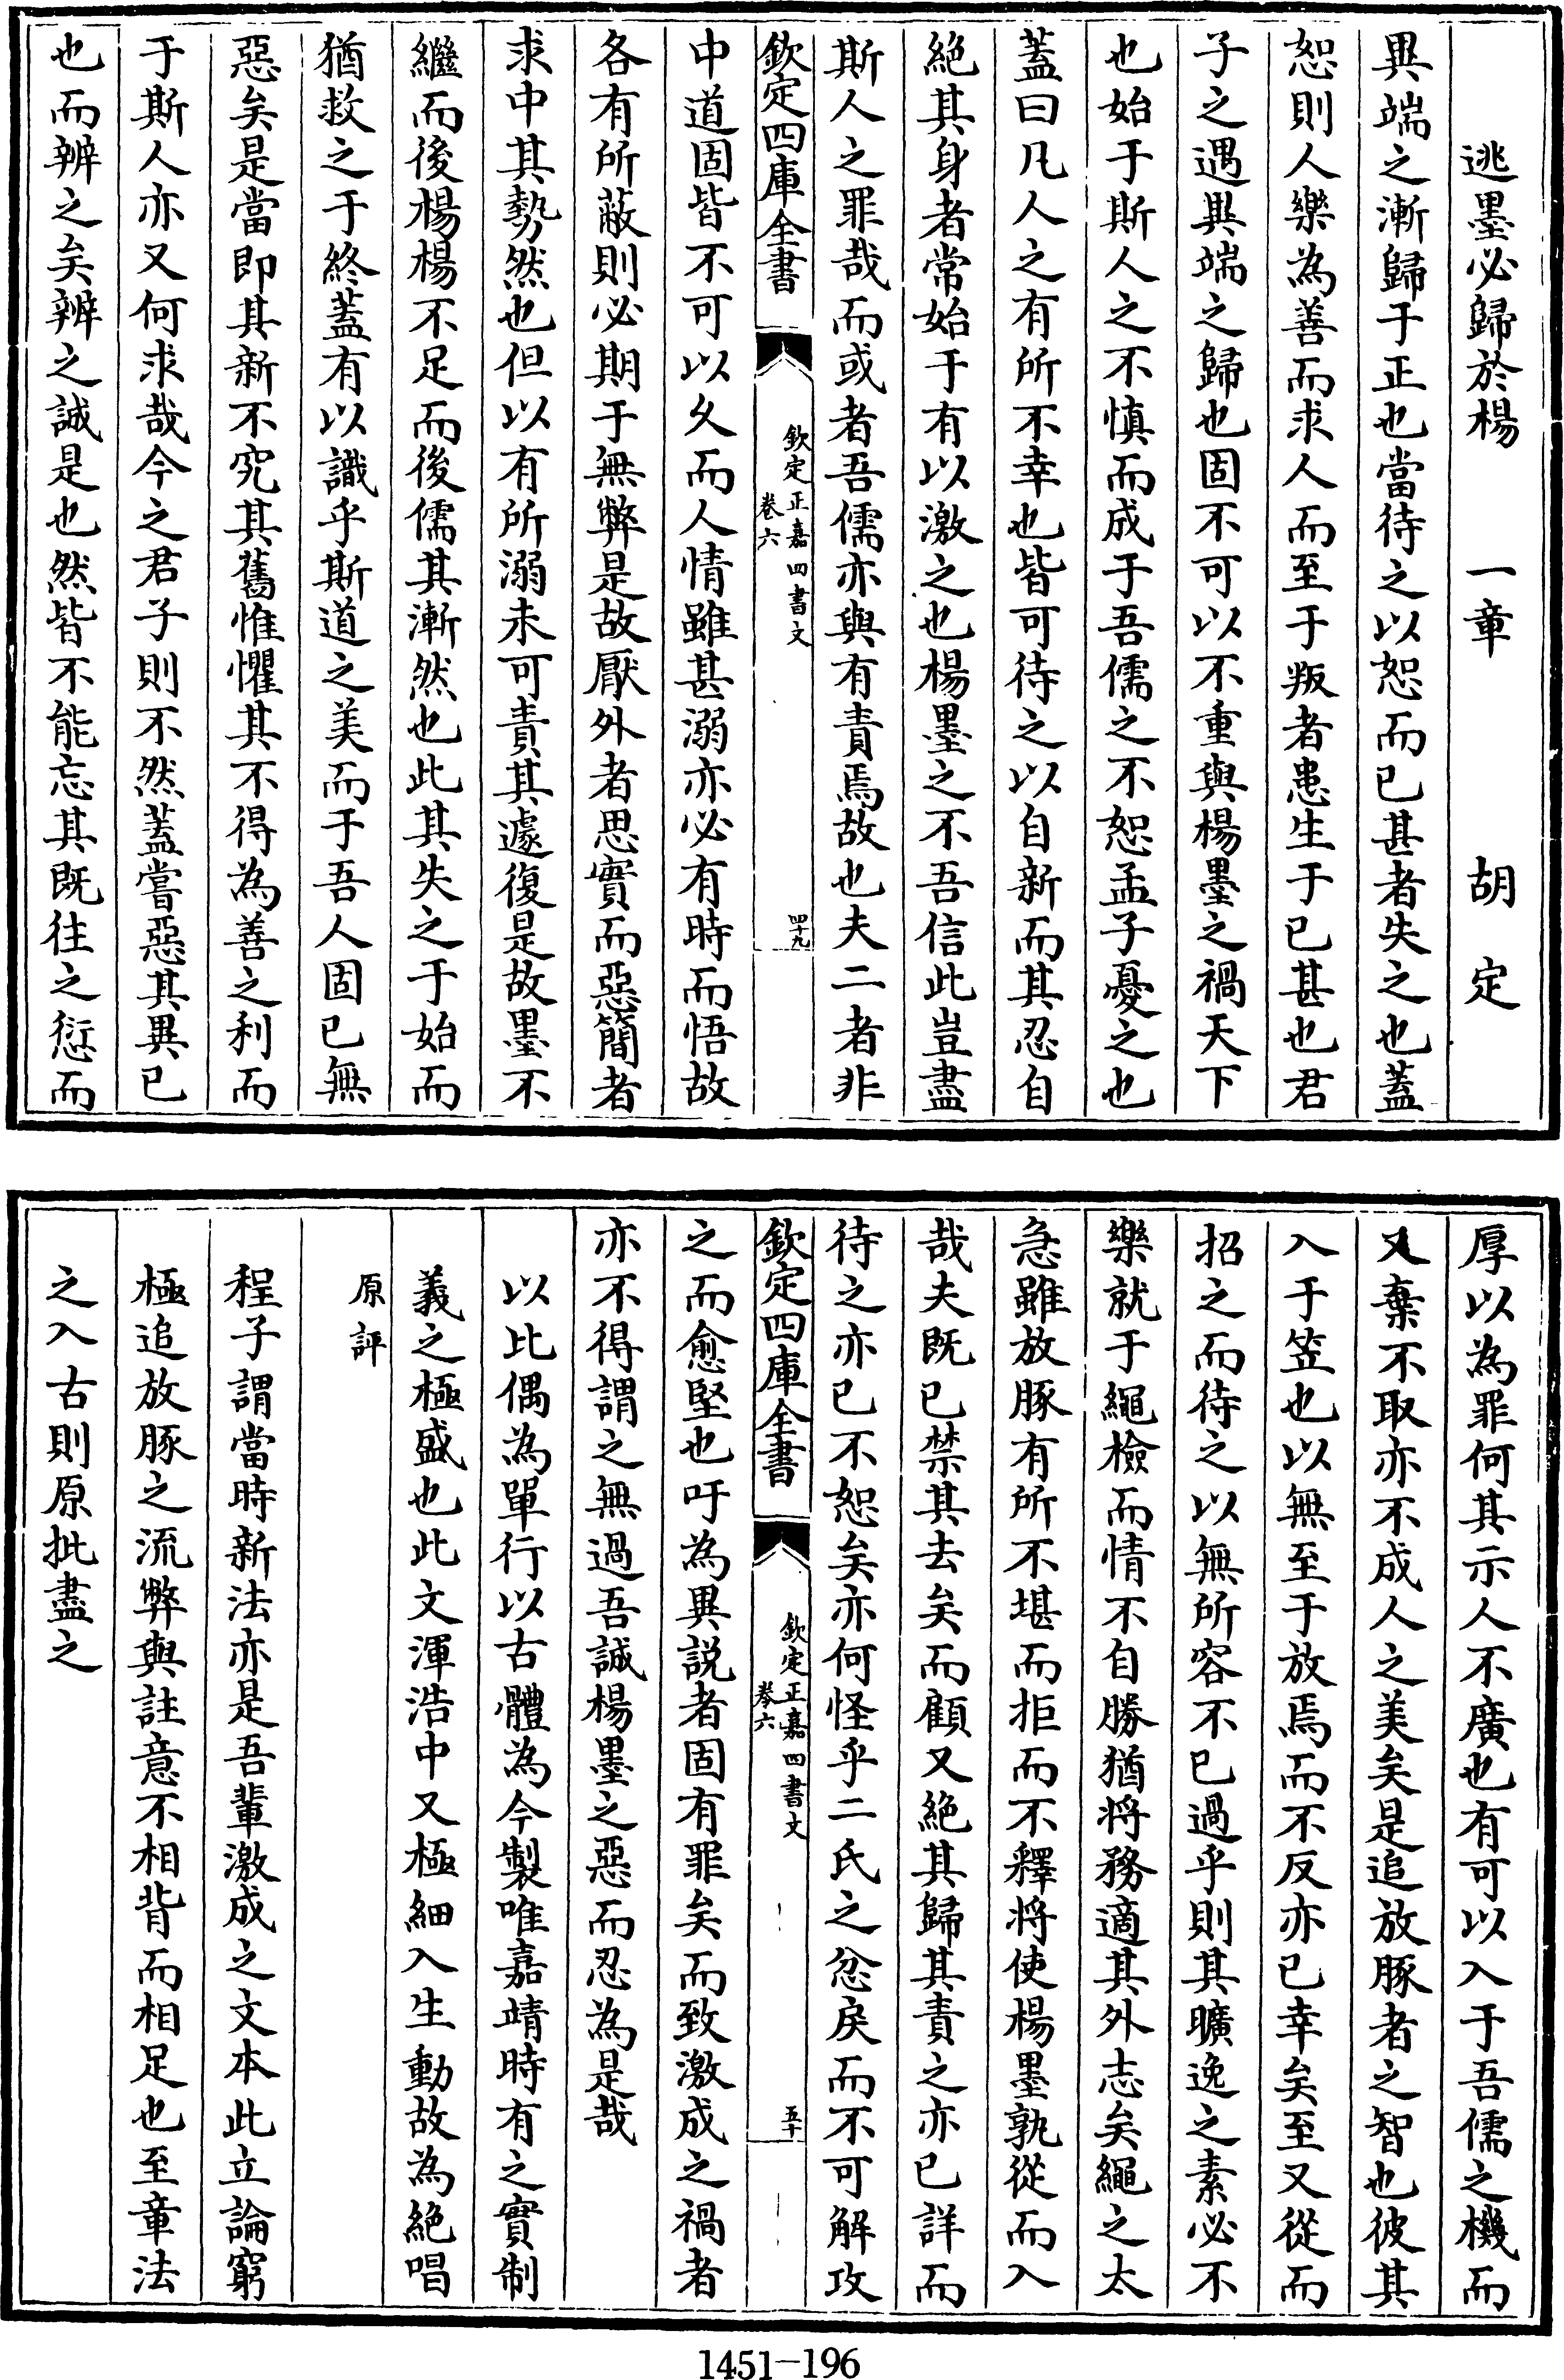 逃墨必歸於楊　一章　胡定
異端之漸歸于正也當待之以恕而已甚者失之也蓋
恕則人樂為善而求人而至于叛者患生于已甚也君
子之遇異端之歸也固不可以不重與楊墨之禍天下
也始于斯人之不慎而成于吾儒之不恕孟子憂之也
蓋曰凡人之有所不幸也皆可待之以自新而其忍自
絕其身者常始于有以激之也楊墨之不吾信此豈盡
斯人之罪哉而或者吾儒亦與有責焉故也夫二者非
欽定四庫全書
欽定正嘉四書文
卷六
四十九
中道固皆不可以久而人情雖甚溺亦必有時而悟故
各有所蔽則必期于無弊是故厭外者思實而惡簡者
求中其勢然也但以有所溺未可責其遽復是故墨不
繼而後楊楊不足而後儒其漸然也此其失之于始而
猶救之于終蓋有以識乎斯道之美而于吾人固已無
惡矣是當即其新不究其舊惟懼其不得為善之利而
于斯人亦又何求哉今之君子則不然蓋嘗惡其異已
也而辨之矣辨之誠是也然皆不能忘其既往之愆而
厚以為罪何其示人不廣也有可以入于吾儒之機而
又棄不取亦不成人之美矣是追放豚者之智也彼其
入于笠也以無至于放焉而不反亦已幸矣至又從而
招之而待之以無所容不已過乎則其曠逸之素必不
樂就于繩檢而情不自勝猶將務適其外志矣繩之太
急雖放豚有所不堪而拒而不釋將使楊墨孰從而入
哉夫既已禁其去矣而顧又絕其歸其責之亦已詳而
待之亦已不恕矣亦何怪乎二氏之忿戾而不可解攻
欽定四庫全書
欽定正嘉四書文
卷六
五十
之而愈堅也吁為異說者固有罪矣而致激成之禍者
亦不得謂之無過吾誠楊墨之惡而忍為是哉
以比偶為單行以古體為今製唯嘉靖時有之實制
義之極盛也此文渾浩中又極細入生動故為絕唱
原評
程子謂當時新法亦是吾輩激成之文本此立論窮
極追放豚之流弊與註意不相背而相足也至章法
之入古則原批盡之
1451-196